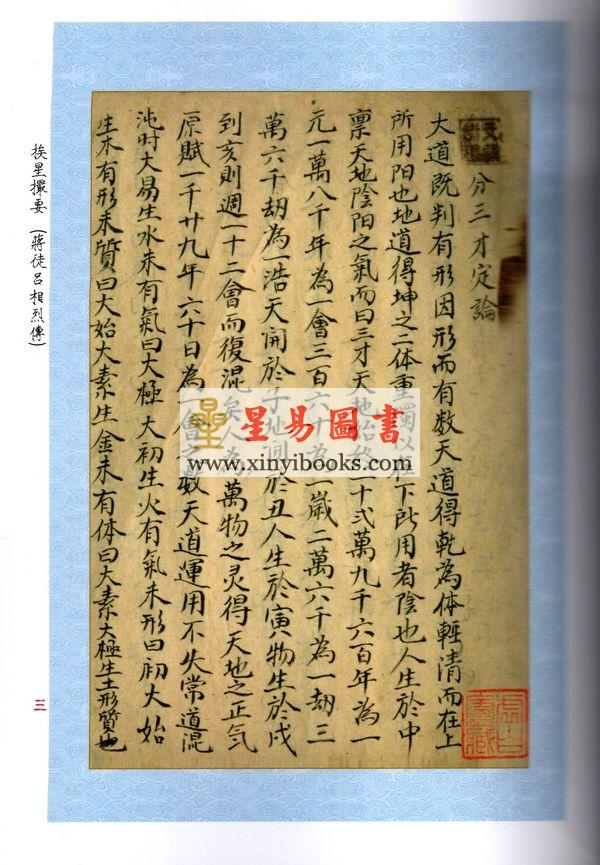 分三才定論
大道既判有形因形而有数天道得乾為体輕清而在上
所用陽也地道得坤之二体重濁以在下所用者陰也人生於中
禀天地陰阳之氣而曰三才天地始終一十弍萬九千六百年為一
元一萬八千年為一會三百六十為一歲二萬六千為一劫三
萬六千劫為一浩天開於子地於丑人生於寅物生於戌
到亥則週一十二會而復混矣人為萬物之灵得天地之正氣
原賦一千廿九年六十日為一會之数天道運用不失常道混
沌时大易生水未有氣曰大極大初生火有氣未形曰初大始
生木有形未質曰大始大素生金未有体曰大素大極生土形質也
挨星撮要（蔣徒呂相烈傳）
三
星易圖書
www.xinyibooks.com
虛白廬藏